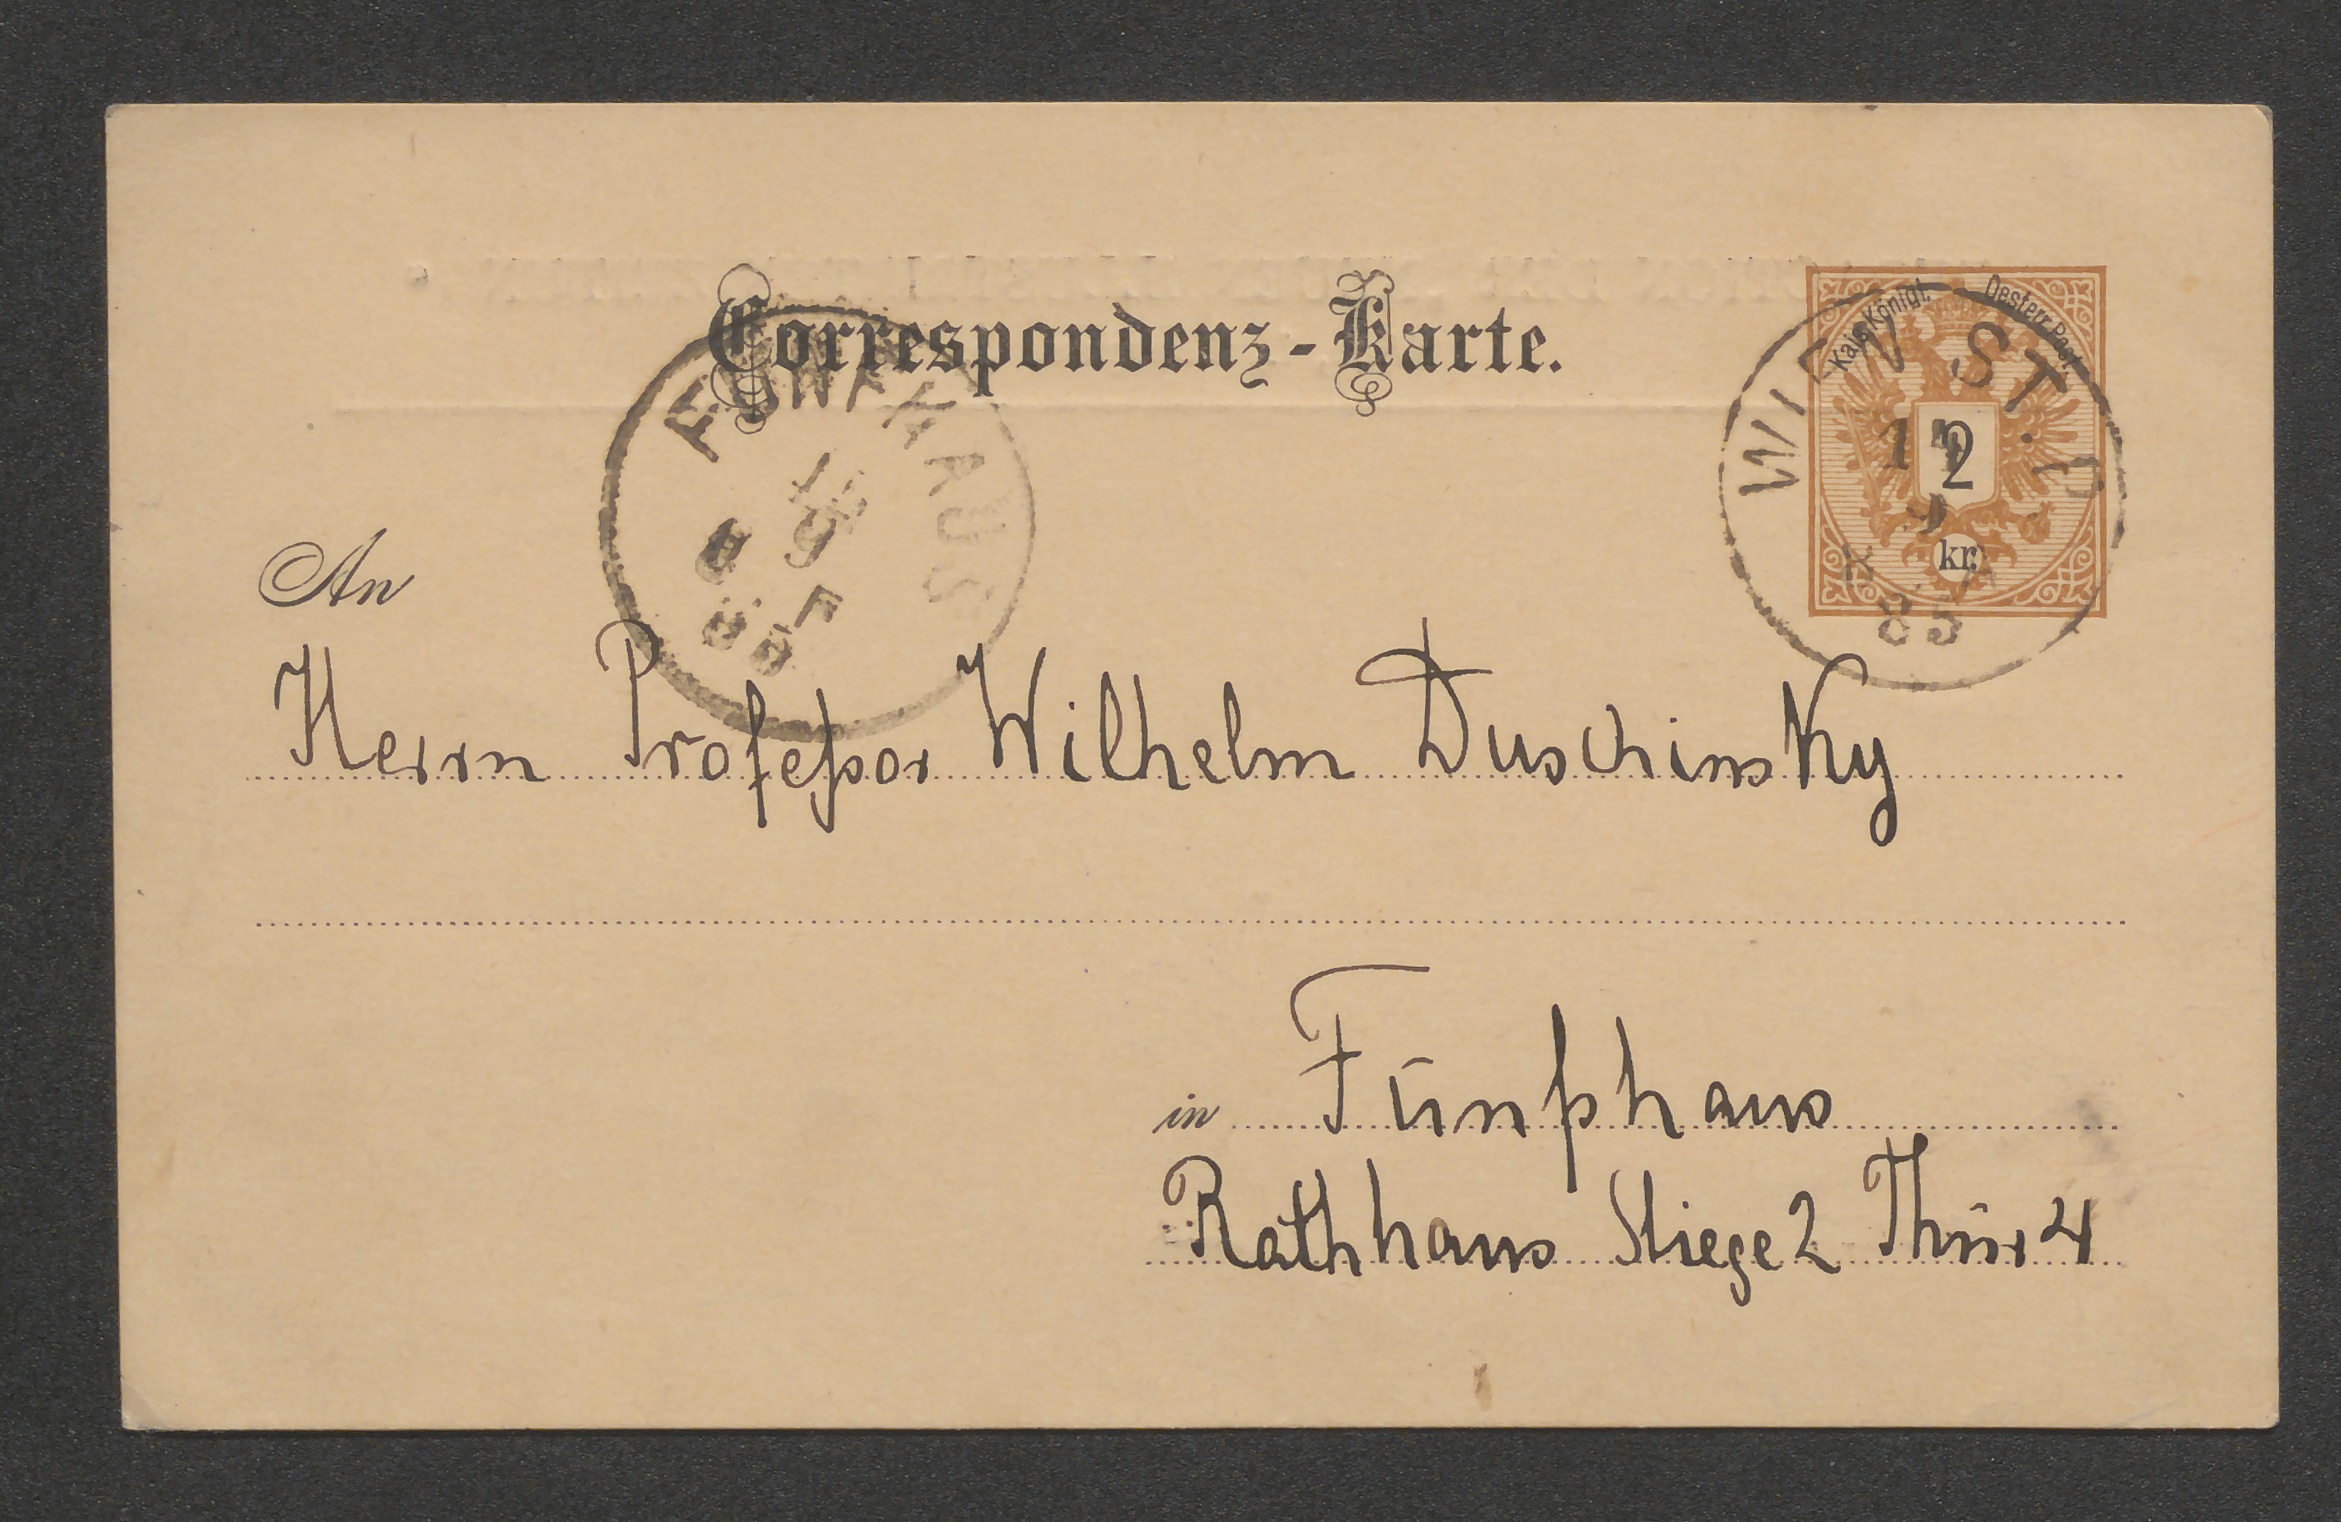 Correspondenz-Karte.
Kais. Königl. Oesterr. Post.
2
kr.
WIEN ST.
14
9
85
FÜNFHAUS
15
9
An
Herrn Professor Wilhelm Duschinsky
in Fünfhaus
Rathhaus Stiege 2 Thür 4